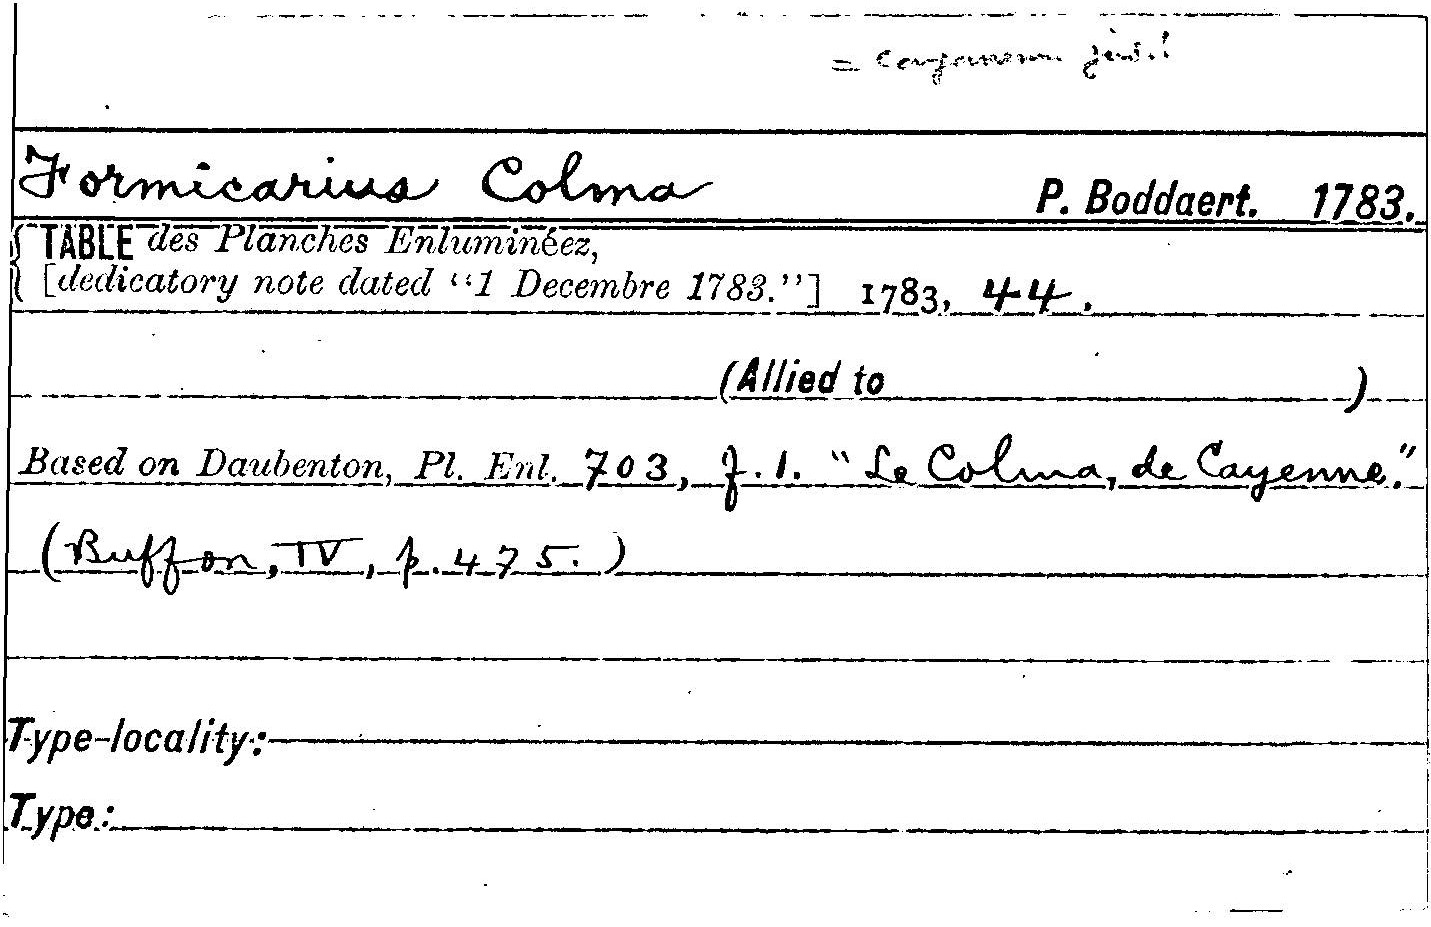 =
Formicarius Colma P. Boddaert. 1783.
{ TABLE des Planches Enluminéez,
[dedicatory note dated "1 Decembre 1783."] 1783, 44.
(Allied to )
Based on Daubenton, Pl. Enl. 703, f.1. "Le Colma, de Cayenne."
(Buffon, IV, p. 475.)
Type-locality:
Type: